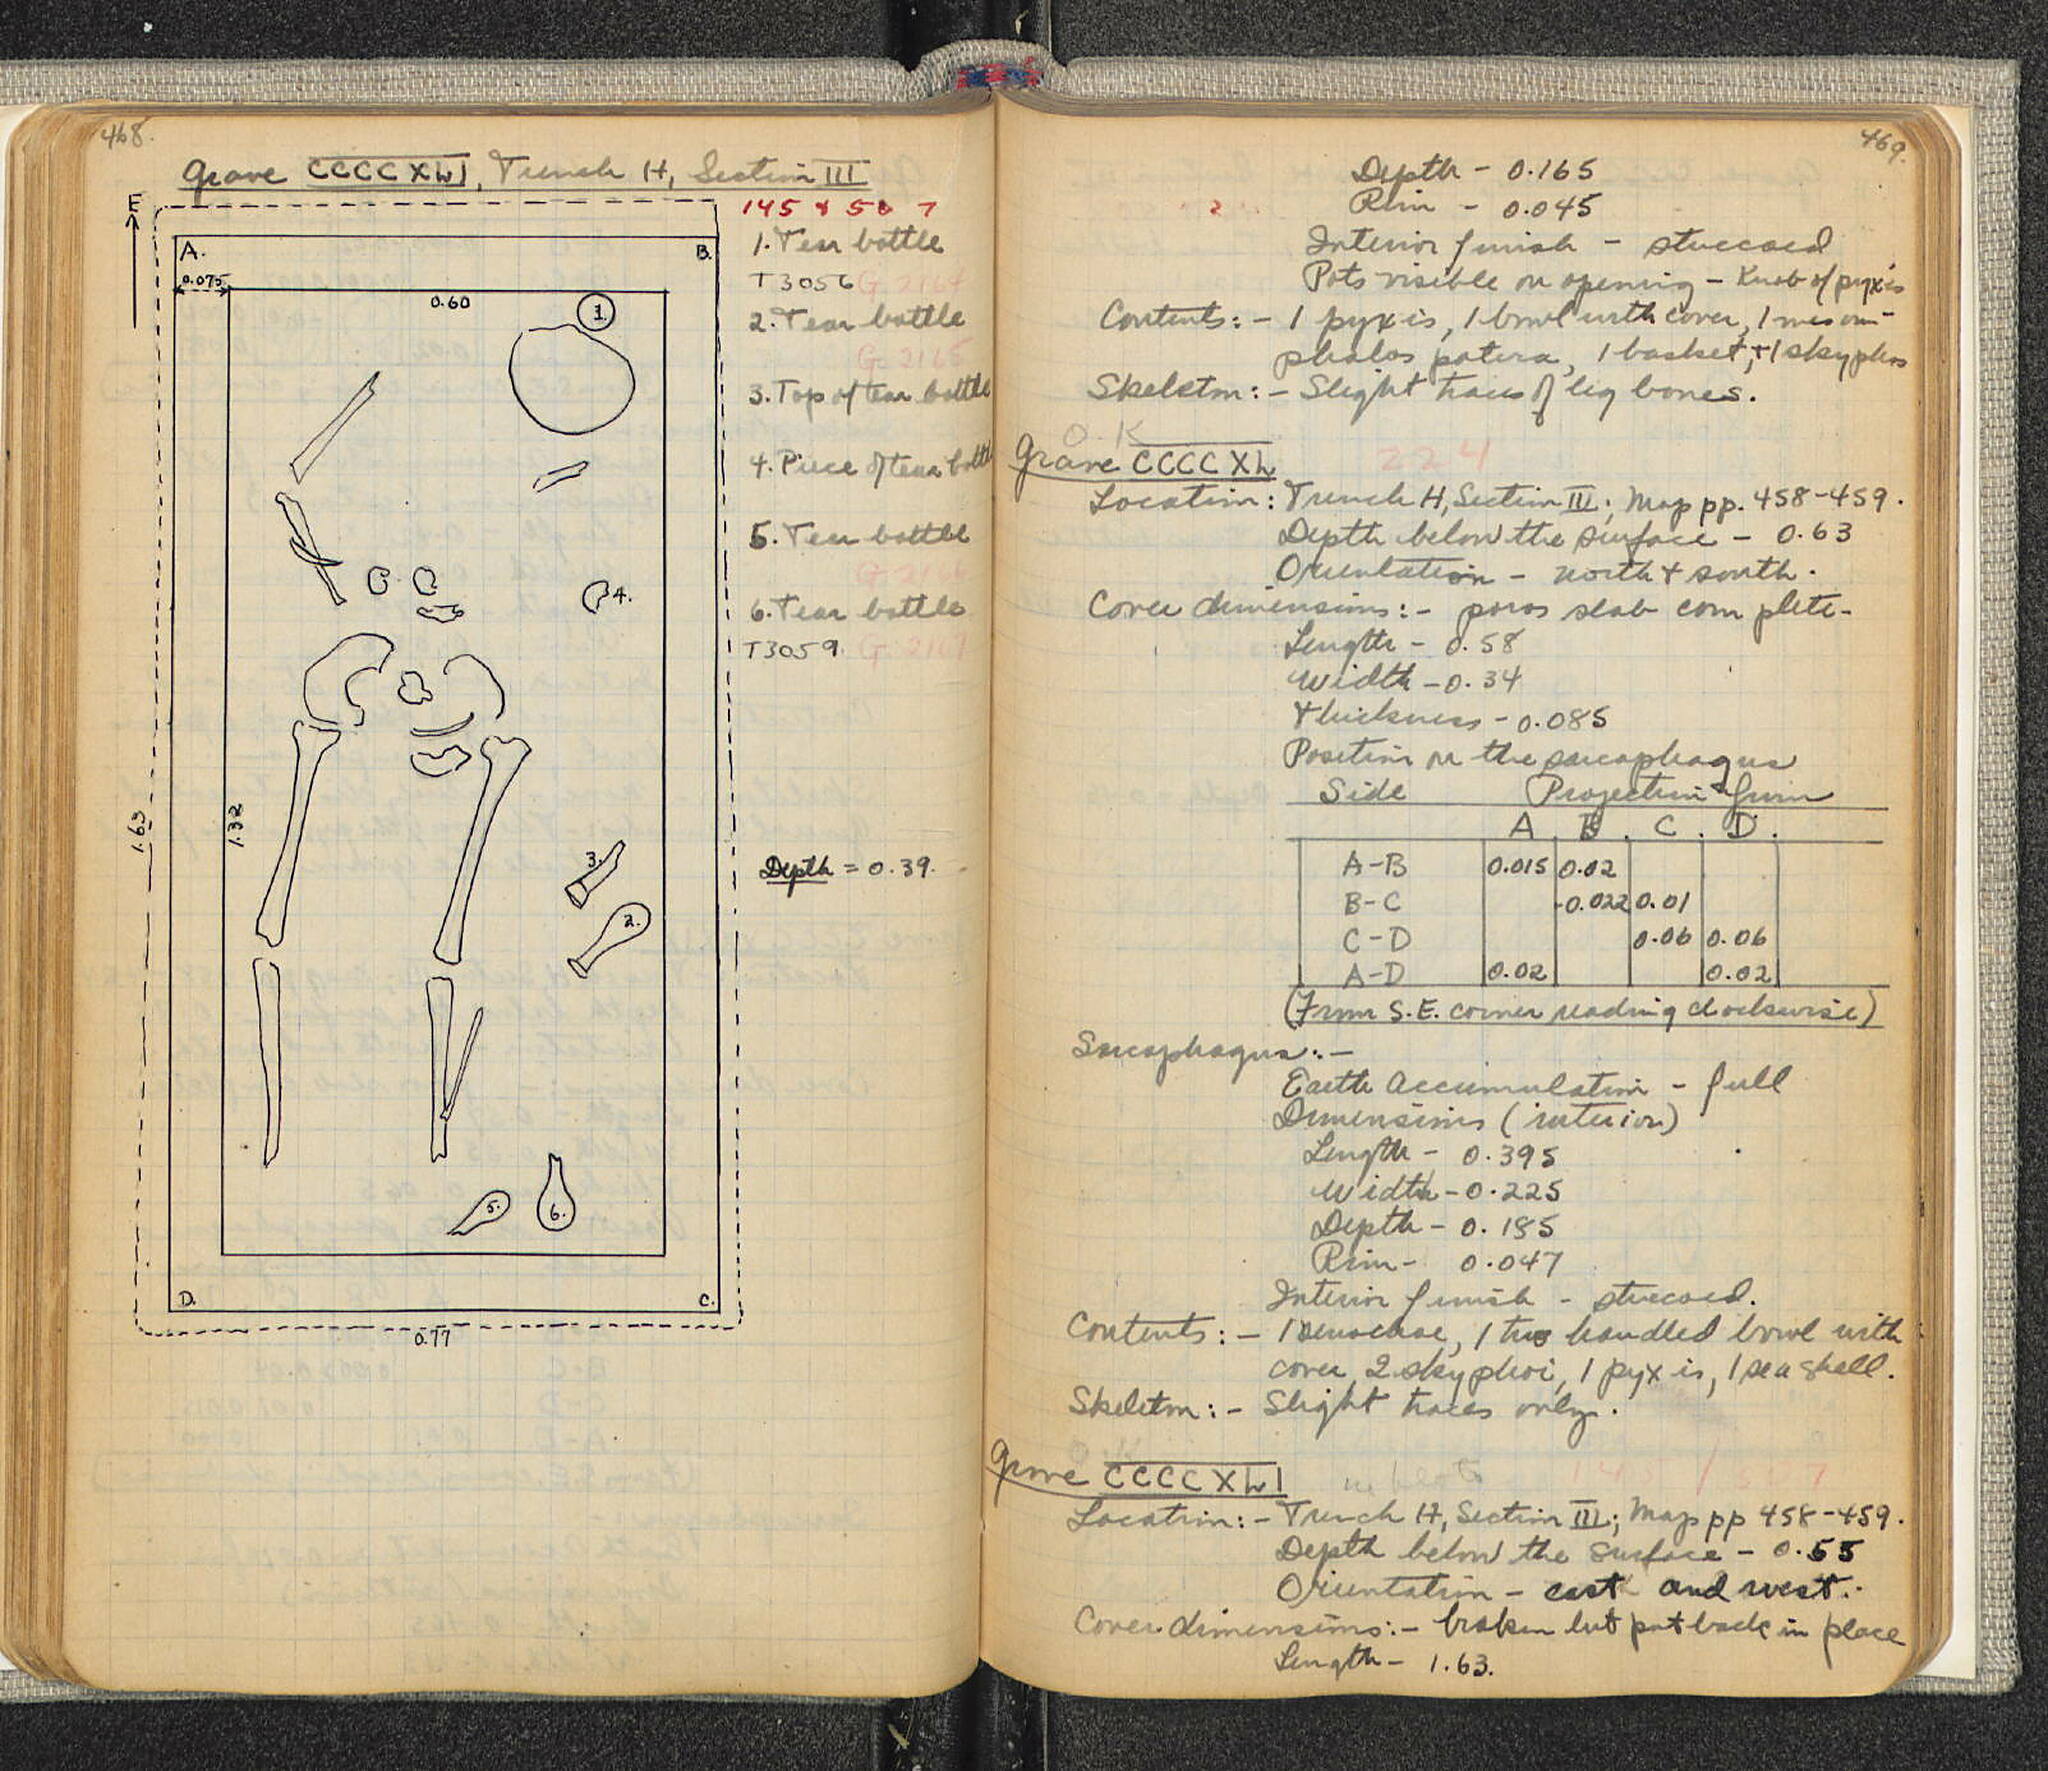 468.
Grave CCCCXLI, Trench H, Section III
E
A.
B.
0.075
0.60
1.
4.
1.63
1.32
3.
2.
5.
6.
D.
C.
0.77
145
1. Tear bottle
T3056 G 2164
2. Tear bottle
G 2165
3. Top of tear bottle
4. Piece of tear bottle
5. Tear bottle
G 2166
6. Tear bottle
T3059. G 2167
Depth = 0.39.
469.
Depth - 0.165
Rim - 0.045
Interior finish - stuccoed
Pots visible on opening - Knob of pyxis
Contents: - 1 pyxis, 1 bowl with cover, 1 mesom-
phalos patera, 1 basket, + 1 skyphos
Skeleton: - Slight traces of leg bones.
O.K
Grave CCCCXL 224
Location: Trench H, Section III; Map pp. 458-459.
Depth below the surface - 0.63
Orientation - north + south.
Cover dimensions: - poros slab complete-
Length - 0.58
Width - 0.34
Thickness - 0.085
Position on the sarcophagus
Side Projection from
A. B. C. D.
A-B 0.015 0.02
B-C -0.022 0.01
C-D 0.06 0.06
A-D 0.02 0.02
(From S.E. corner reading clockwise)
Sarcophagus: -
Earth Accumulation - full
Dimensions (interior)
Length - 0.395
Width - 0.225
Depth - 0.185
Rim - 0.047
Interior finish - stuccoed.
Contents: - 1 oenochoe, 1 two handled bowl with
cover, 2 skyphoi, 1 pyxis, 1 sea shell.
Skeleton: - Slight traces only.
O.K
Grave CCCCXLI
Location: - Trench H, Section III; Map pp 458-459.
Depth below the surface - 0.55
Orientation - east and west.
Cover dimensions: - broken but put back in place
Length - 1.63.